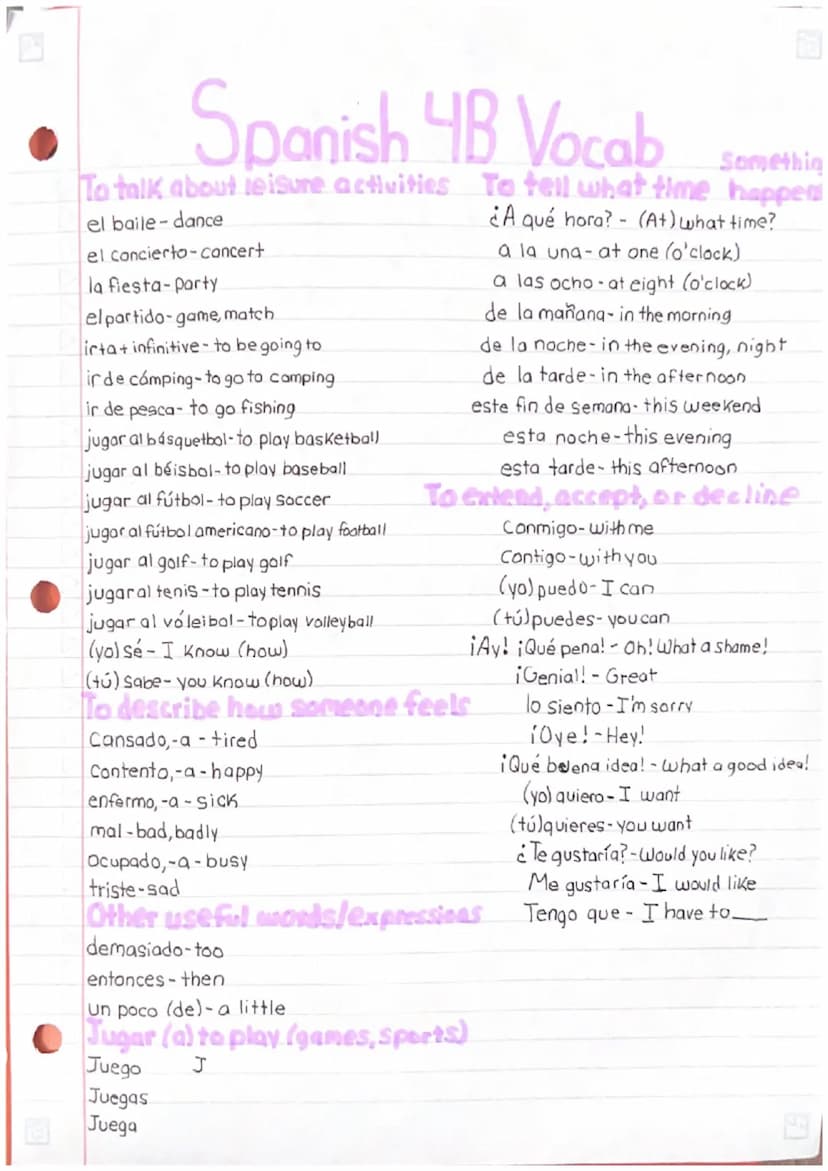 Spanish 4B Vocab
To talk about leisure activities
el baile - dance
el concierto - concert
la fiesta - party
el partido - game, match
ir+a+ infinitive - to be going to
ir de cámping - to go to camping
ir de pesca - to go fishing
jugar al básquetbol - to play basketball
jugar al béisbol - to play baseball
jugar al fútbol - to play soccer
jugar al fútbol americano - to play football
jugar al golf - to play golf
jugar al tenis - to play tennis
jugar al vóleibol - to play volleyball
(yo) sé - I know (how)
(tú) Sabe - you know (how)
To describe how someone feels
Cansado,-a - tired
Contento,-a - happy
enfermo,-a - sick
mal - bad, badly
Ocupado,-a - busy
triste - sad
Other useful words/expressions
demasiado - too
entonces - then
un poco (de) - a little
Jugar (a) to play (games, sports)
Juego J
Juegas
Juega
Somethin
To tell what time happen
¿A qué hora? - (At) what time?
a la una - at one (o'clock)
a las ocho - at eight (o'clock)
de la mañana - in the morning
de la noche - in the evening, night
de la tarde - in the afternoon
este fin de semana - this weekend
esta noche - this evening
esta tarde - this afternoon
To extend, accept, or decline
Conmigo - with me
Contigo - with you
(yo) puedo - I can
(tú) puedes - you can
¡Ay! ¡Qué pena! - Oh! What a shame!
¡Genial! - Great
lo siento - I'm sorry
¡Oye! - Hey!
¡Qué buena idea! - What a good idea!
(yo) quiero - I want
(tú) quieres - you want
¿Te gustaría? - Would you like?
Me gustaría - I would like
Tengo que - I have to___